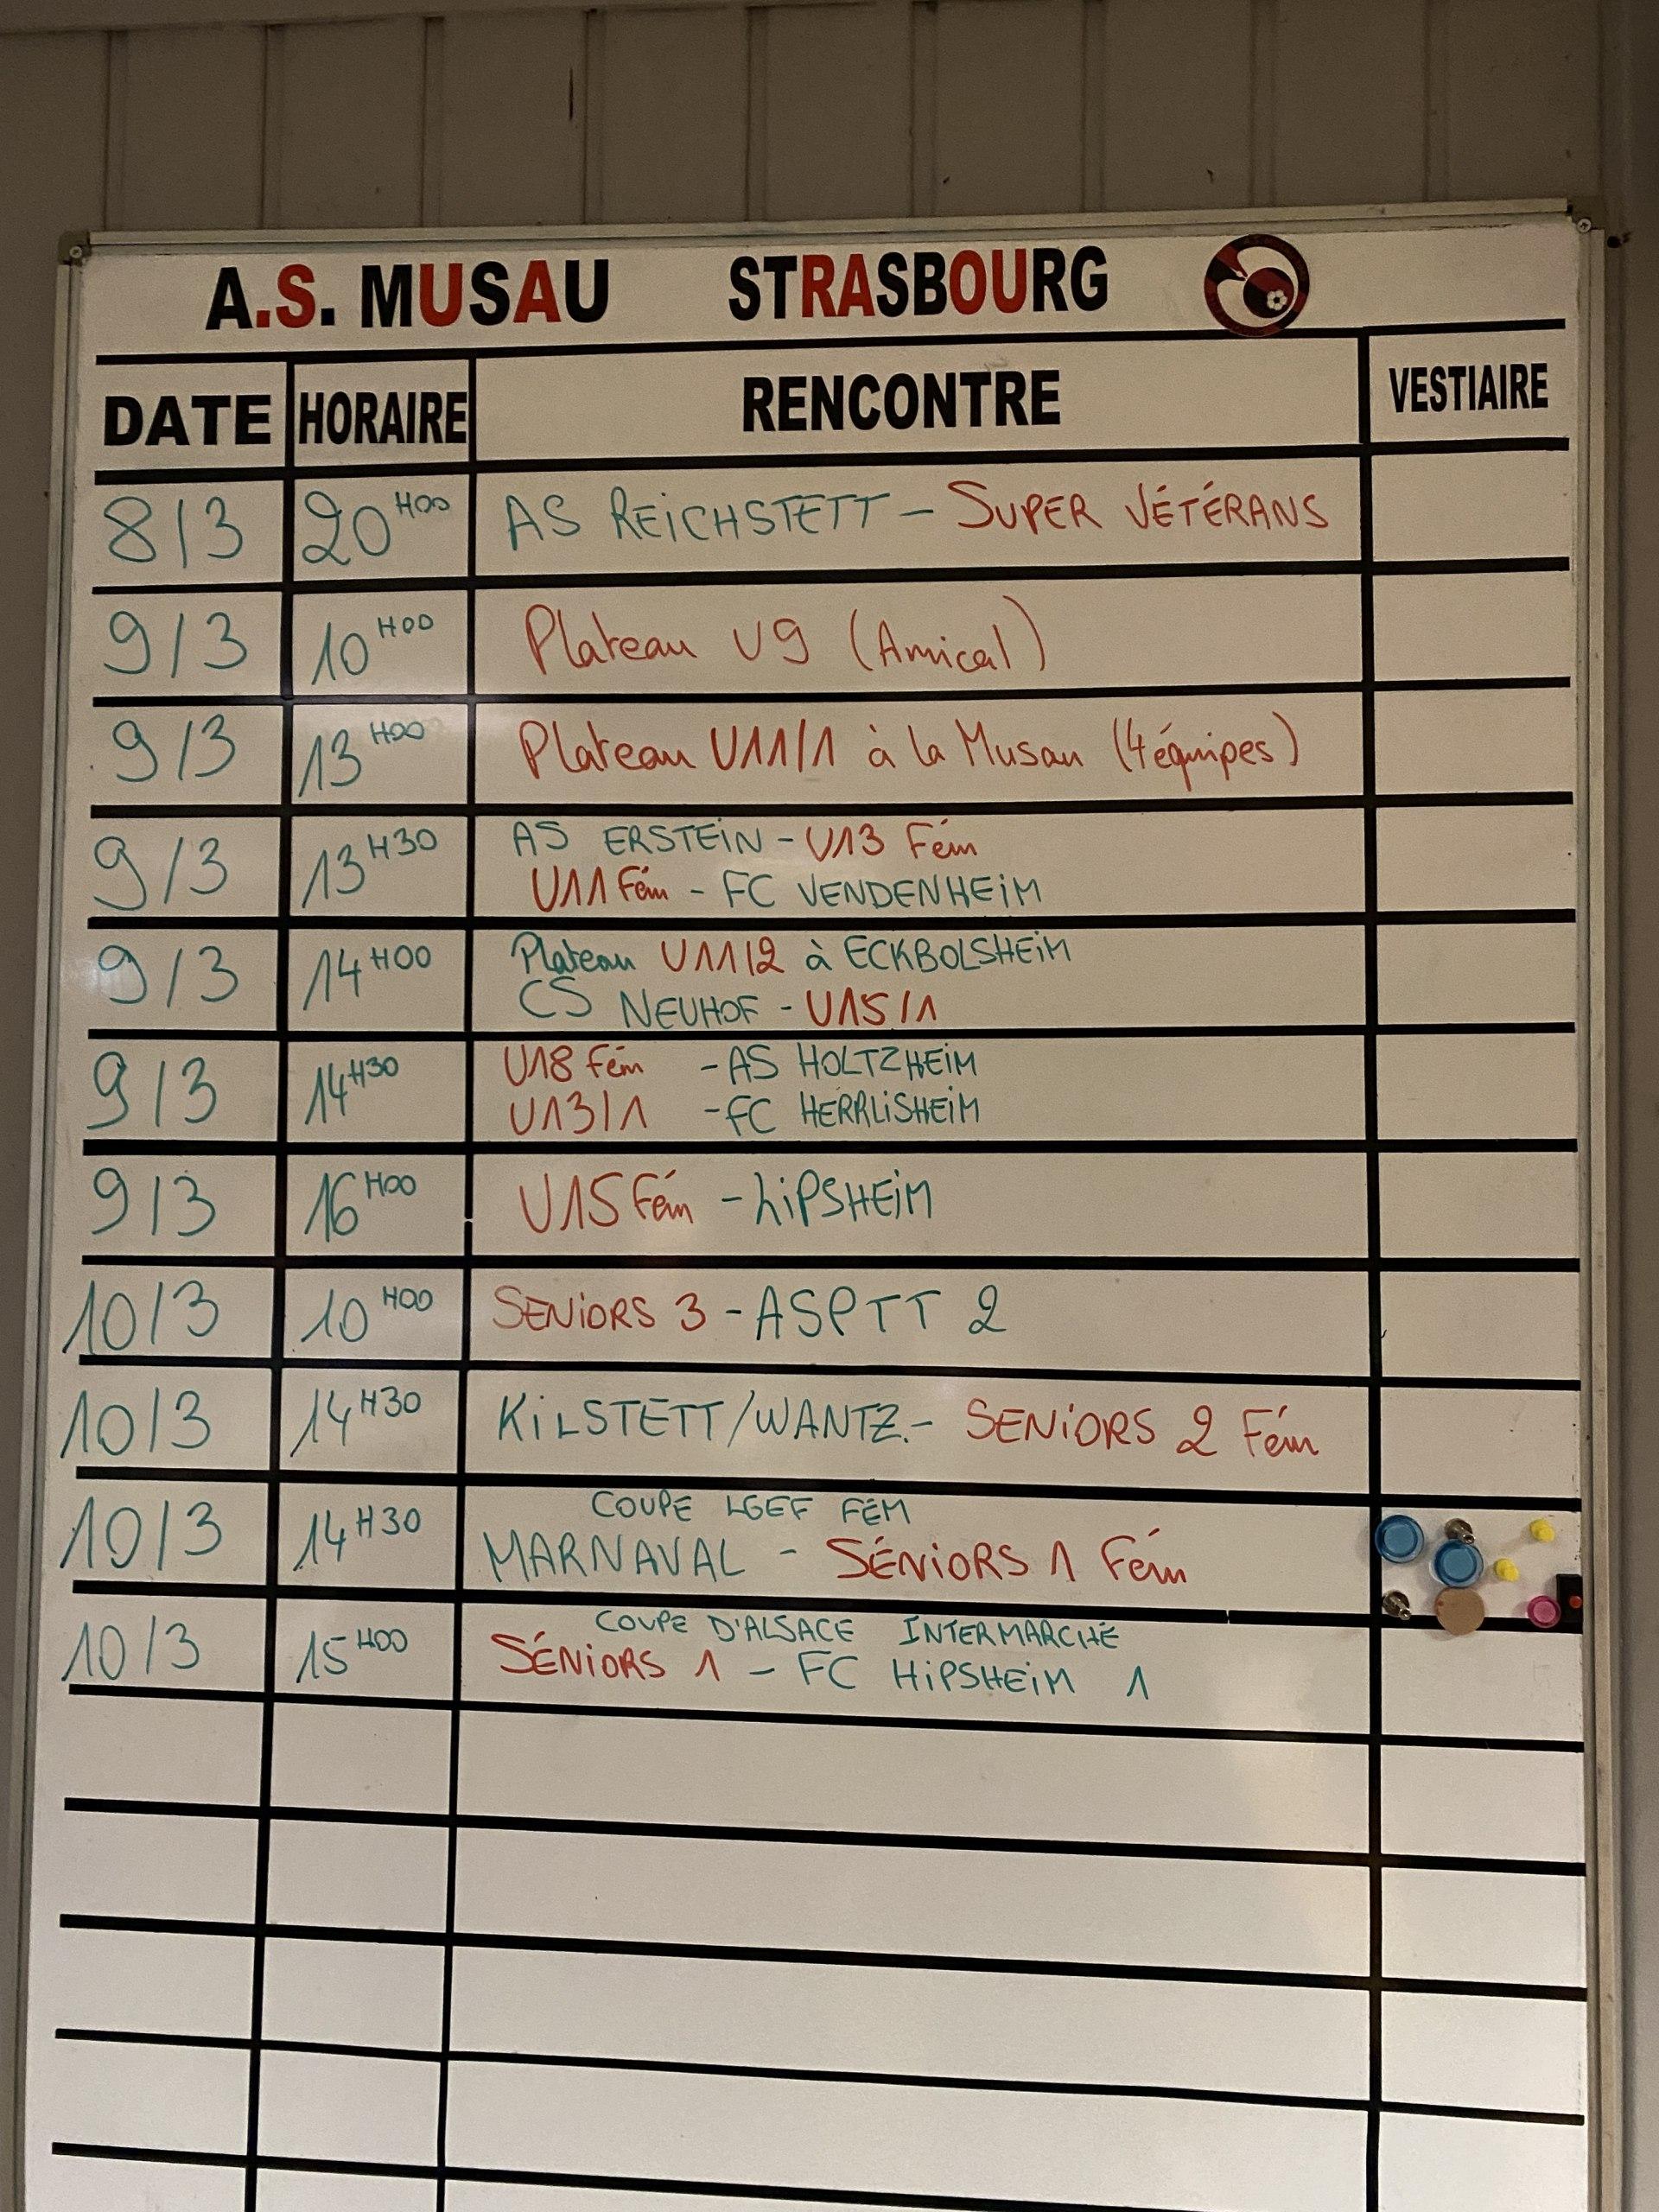 A.S. MUSAU STRASBOURG
DATE HORAIRE RENCONTRE VESTIAIRE
8/3 20H00 AS REiCHSTETT - SUPER VÉTÉRANS
9/3 10H00 Plateau U9 (Amical)
9/3 13H00 Plateau U11/1 à la Musau (4 équipes)
9/3 13H30 AS ERSTEiN - U13 Fém
U11 Fém - FC VENDENHEiM
9/3 14H00 Plateau U11/2 à ECKBOLSHEiM
CS NEUHOF - U15/1
9/3 14H30 U18 Fém - AS HOLTZHEiM
U13/1 - FC HERRLiSHEiM
9/3 16H00 U15 Fém - LiPSHEiM
10/3 10H00 SENiORS 3 - ASPTT 2
10/3 14H30 KiLSTETT/WANTZ. - SENiORS 2 Fém
COUPE LGEF FÉM
10/3 14H30 MARNAVAL - SÉNiORS 1 Fém
COUPE D'ALSACE INTERMARCHÉ
10/3 15H00 SÉNiORS 1 - FC HiPSHEiM 1